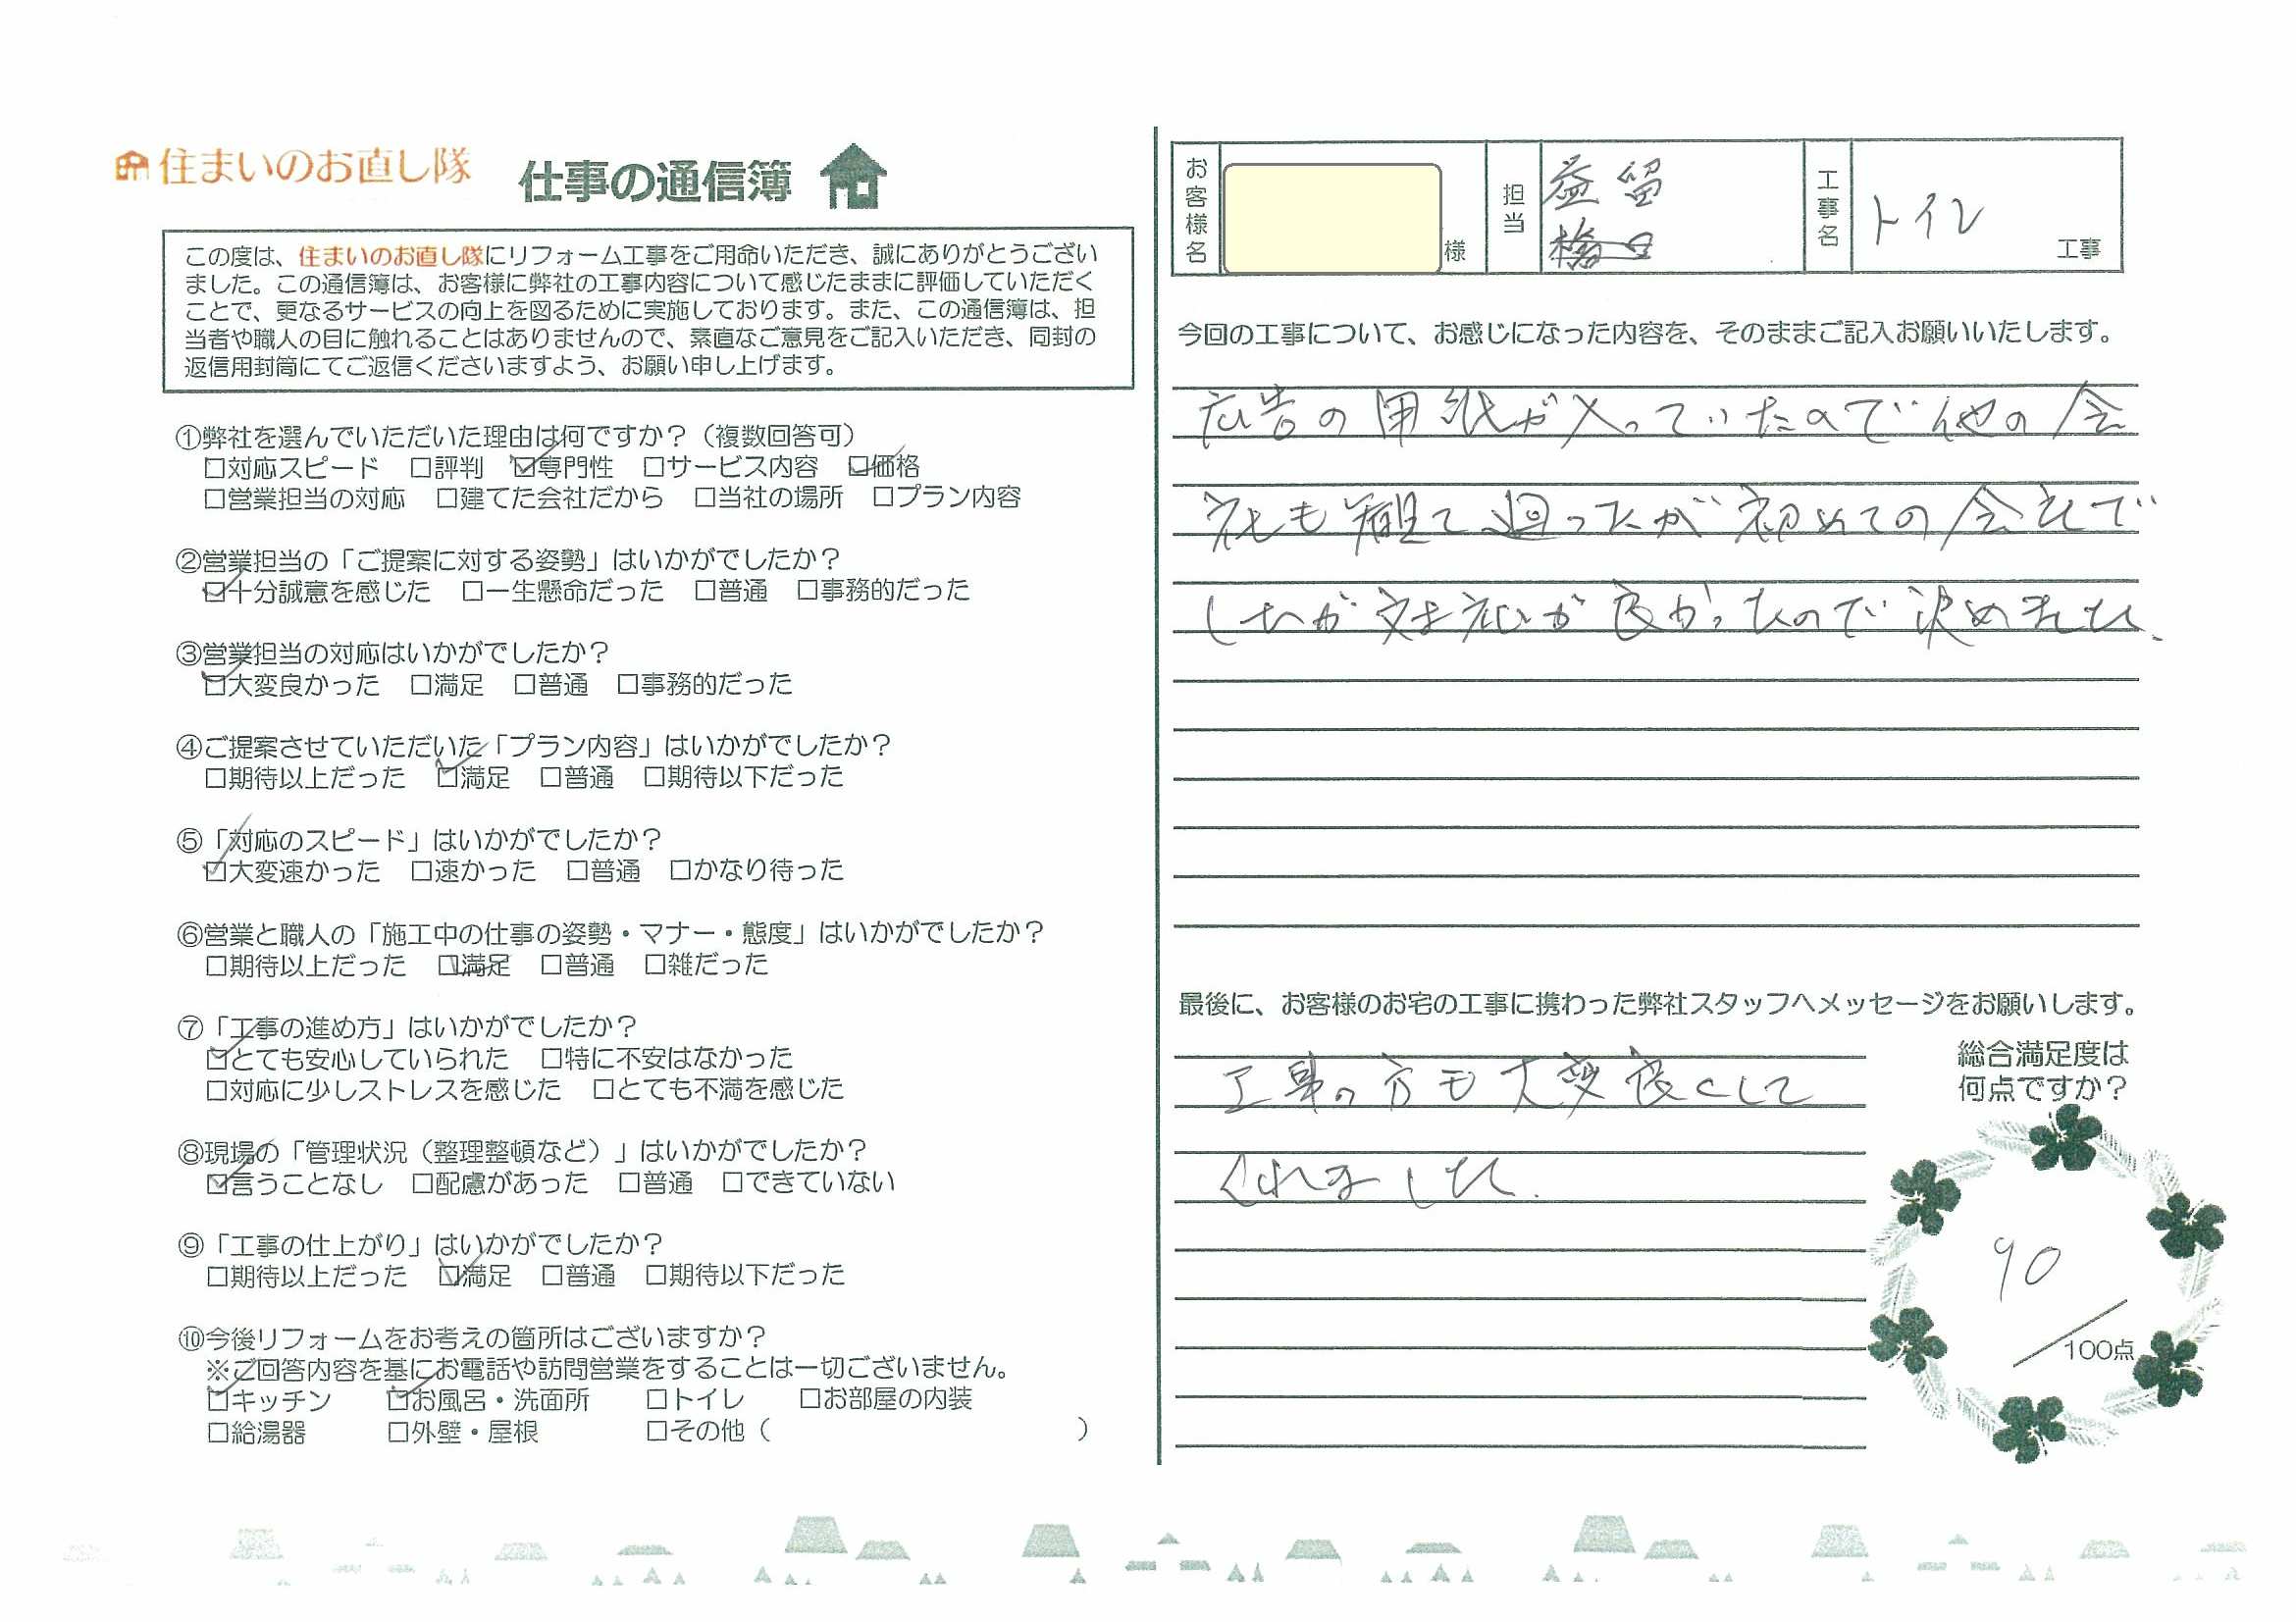 住まいのお直し隊
仕事の通信簿
この度は、住まいのお直し隊にリフォーム工事をご用命いただき、誠にありがとうござい
ました。この通信簿は、お客様に弊社の工事内容について感じたままに評価していただく
ことで、更なるサービスの向上を図るために実施しております。また、この通信簿は、担
当者や職人の目に触れることはありませんので、素直なご意見をご記入いただき、同封の
返信用封筒にてご返信くださいますよう、お願い申し上げます。
①弊社を選んでいただいた理由は何ですか？（複数回答可）
□対応スピード □評判 ☑専門性 □サービス内容 ☑価格
□営業担当の対応 □建てた会社だから □当社の場所 □プラン内容
②営業担当の「ご提案に対する姿勢」はいかがでしたか？
☑十分誠意を感じた □一生懸命だった □普通 □事務的だった
③営業担当の対応はいかがでしたか？
☑大変良かった □満足 □普通 □事務的だった
④ご提案させていただいた「プラン内容」はいかがでしたか？
□期待以上だった ☑満足 □普通 □期待以下だった
⑤「対応のスピード」はいかがでしたか？
☑大変速かった □速かった □普通 □かなり待った
⑥営業と職人の「施工中の仕事の姿勢・マナー・態度」はいかがでしたか？
□期待以上だった ☑満足 □普通 □雑だった
⑦「工事の進め方」はいかがでしたか？
☑とても安心していられた □特に不安はなかった
□対応に少しストレスを感じた □とても不満を感じた
⑧現場の「管理状況（整理整頓など）」はいかがでしたか？
☑言うことなし □配慮があった □普通 □できていない
⑨「工事の仕上がり」はいかがでしたか？
□期待以上だった ☑満足 □普通 □期待以下だった
⑩今後リフォームをお考えの箇所はございますか？
※ご回答内容を基にお電話や訪問営業をすることは一切ございません。
☑キッチン ☑お風呂・洗面所 □トイレ □お部屋の内装
□給湯器 □外壁・屋根 □その他（ ）
お客様名 様 担当 益留 工事名 トイレ 工事
今回の工事について、お感じになった内容を、そのままご記入お願いいたします。
広告の用紙が入っていたので他の会
社も観て廻ったが初めての会社で
したが対応が良かったので決めました、
最後に、お客様のお宅の工事に携わった弊社スタッフへメッセージをお願いします。
工事の方も大変良くして
くれました.
総合満足度は
何点ですか？
90
／100点